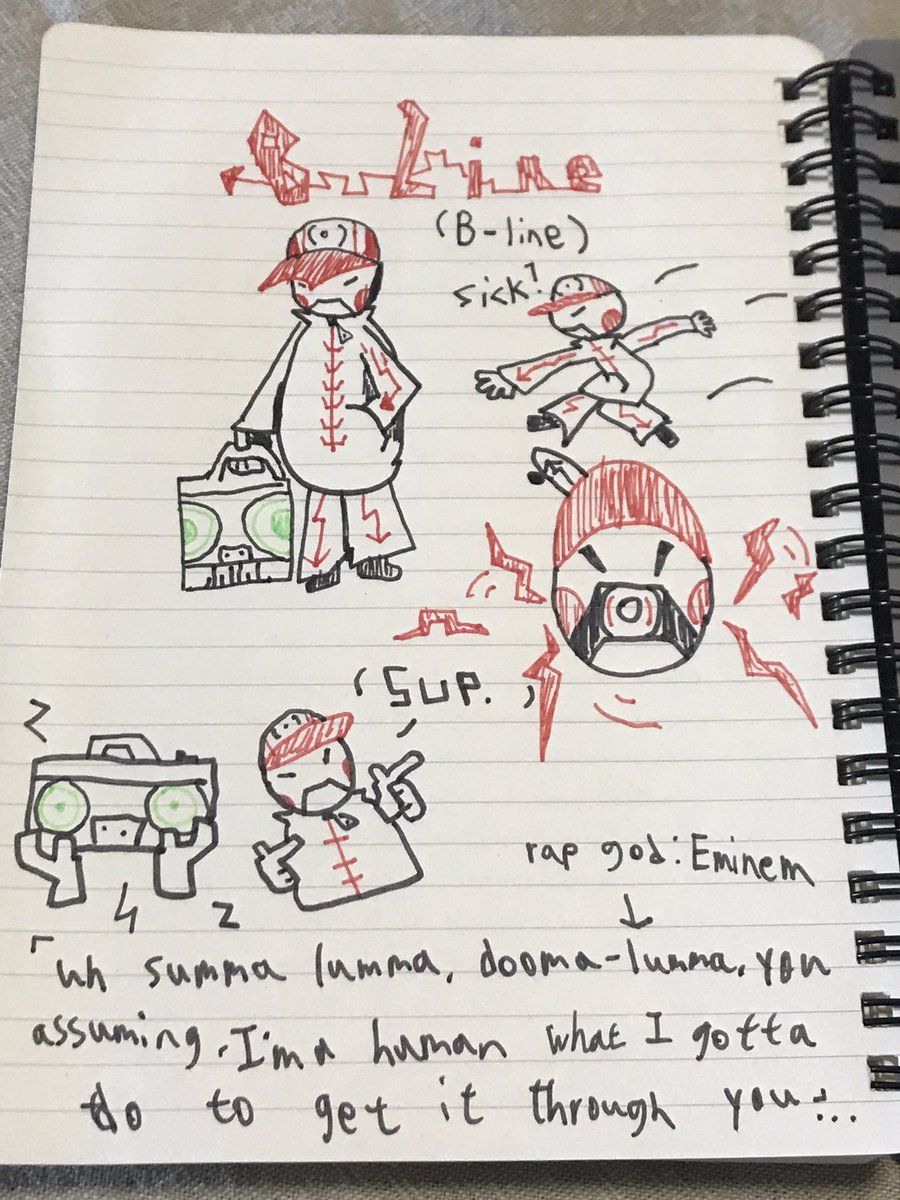 (B-line)
sick?
'SUP.,
rap god: Eminem
「uh summa lumma, dooma-lumma, you
assuming, I'm a human what I gotta
do to get it through you...